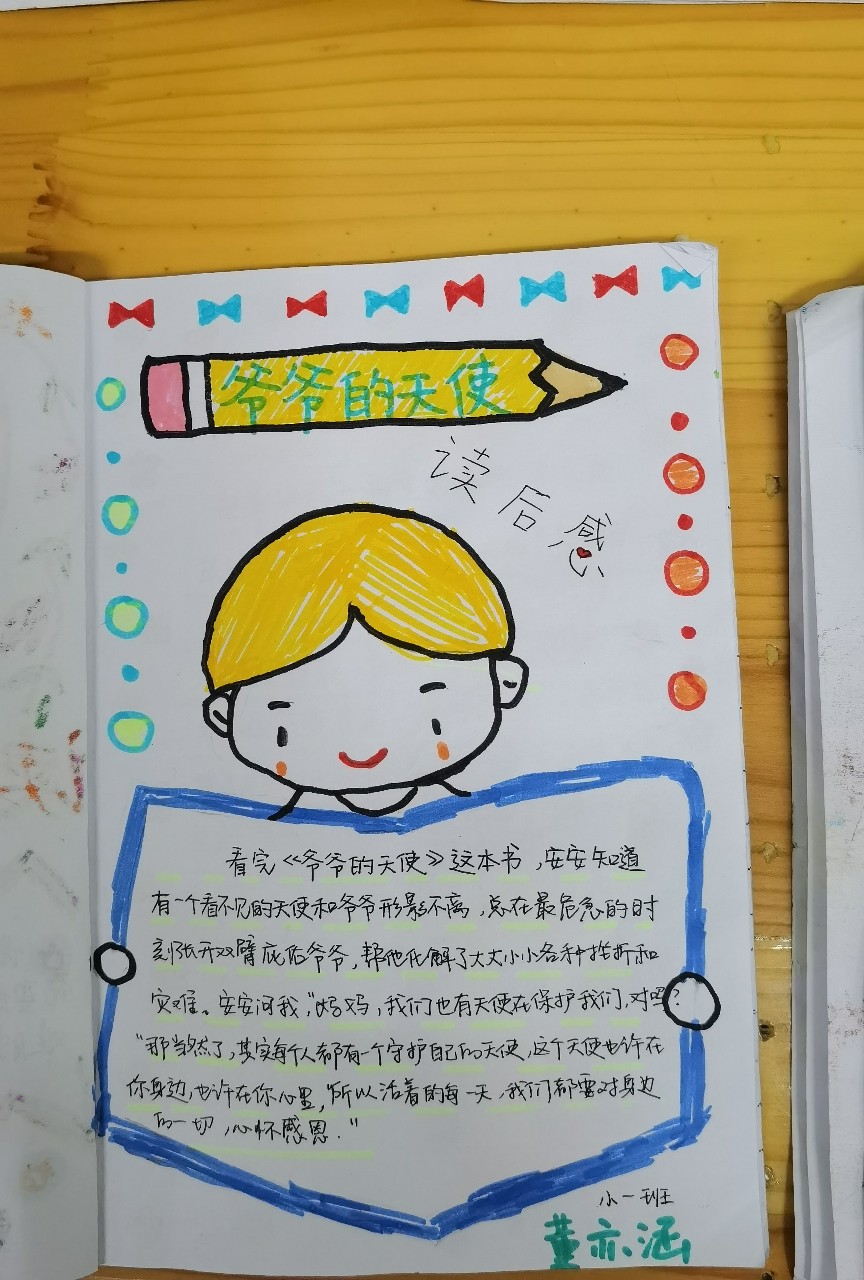 爷爷的天使
读后感
看完《爷爷的天使》这本书,安安知道
有一个看不见的天使和爷爷形影不离,总在最危急的时
刻张开双臂庇佑爷爷,帮他化解了大大小小各种挫折和
灾难。安安问我,"妈妈,我们也有天使在保护我们,对吗?
"那当然了,其实每个人都有一个守护自己的天使,这个天使也许在
你身边,也许在你心里,"所以活着的每一天,我们都要对身边
的一切,心怀感恩."
小一班
董亦涵